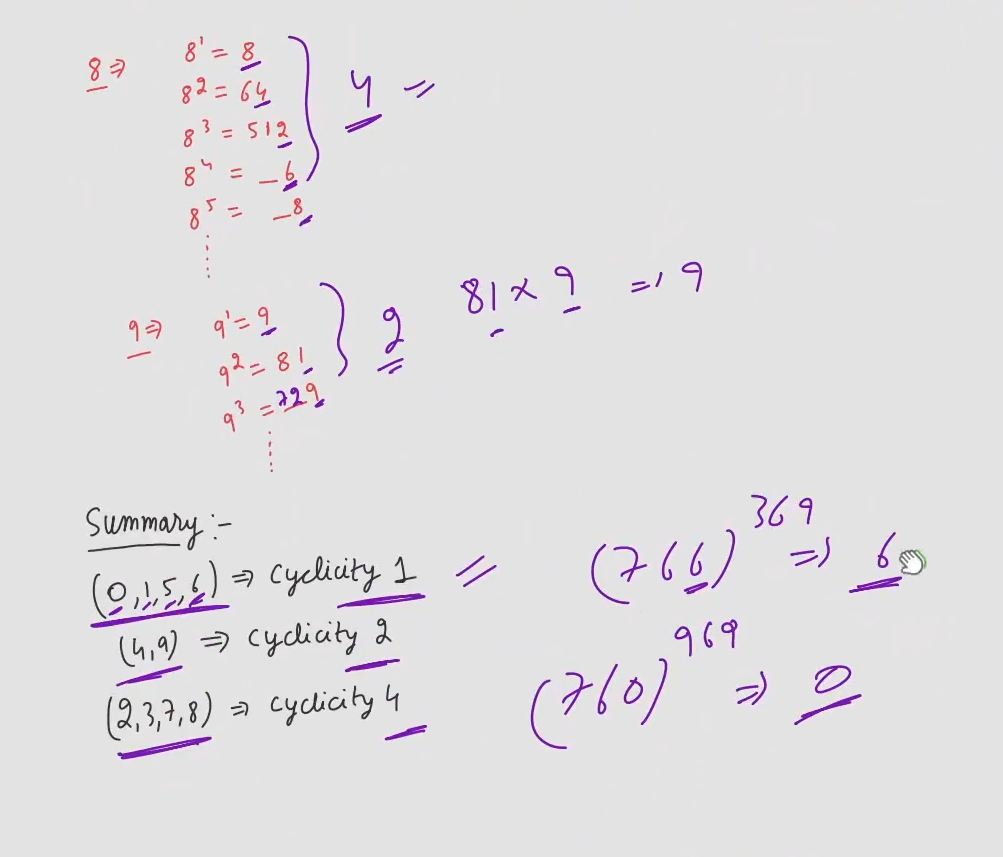 8 ⇒ 8¹ = 8
8² = 64
8³ = 512
8⁴ = _6
8⁵ = _8
4 =
9 ⇒ 9¹ = 9
9² = 81
9³ = 729
2
81 × 9 ⇒ 9
Summary :-
(0,1,5,6) ⇒ cyclicity 1 =
(4,9) ⇒ cyclicity 2
(2,3,7,8) ⇒ cyclicity 4
(766)³⁶⁹ ⇒ 6
(760)⁹⁶⁹ ⇒ 0